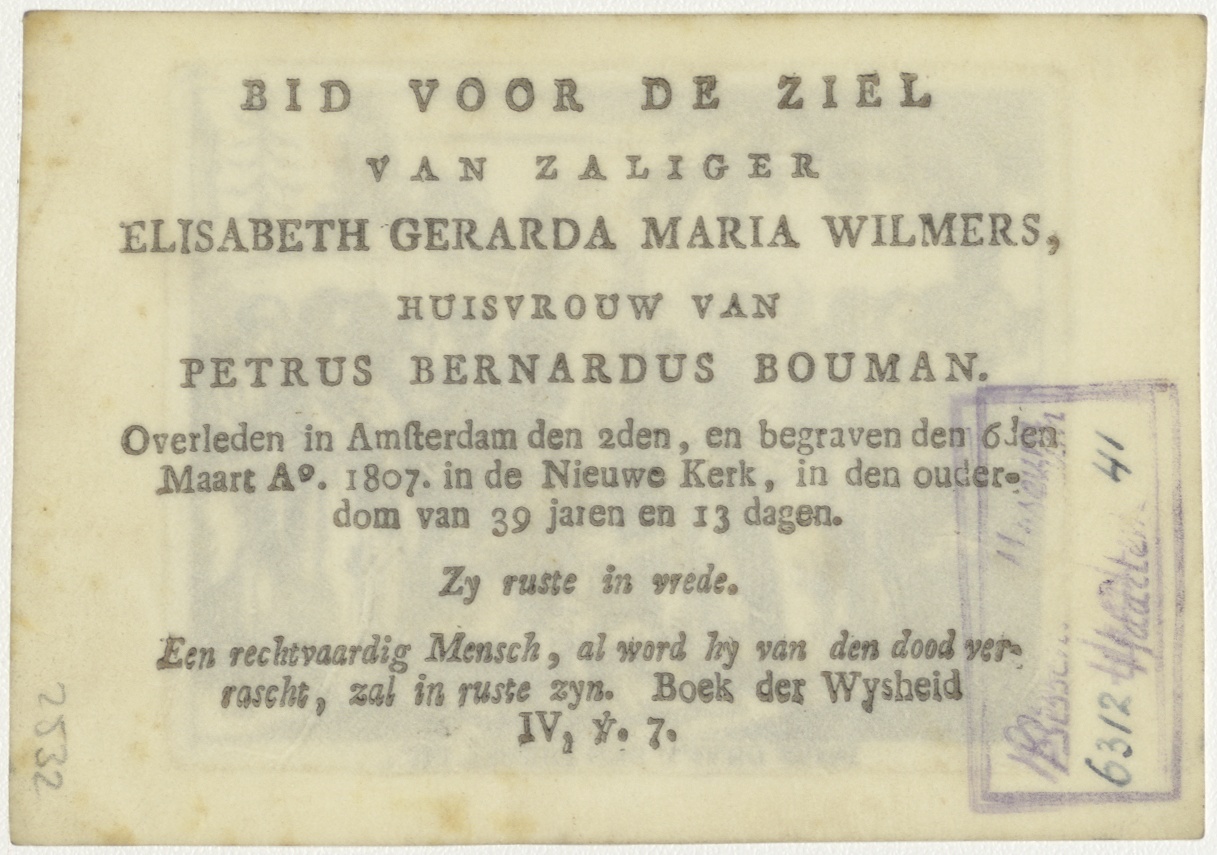 BID VOOR DE ZIEL
VAN ZALIGER
ELISABETH GERARDA MARIA WILMERS,
HUISVROUW VAN
PETRUS BERNARDUS BOUMAN.
Overleden in Amſterdam den 2den, en begraven den 6den
Maart Aº. 1807. in de Nieuwe Kerk, in den ouder-
dom van 39 jaren en 13 dagen.
Zy ruste in vrede.
Een rechtvaardig Mensch, al word hy van den dood ver-
rascht, zal in ruste zyn. Boek der Wysheid
IV, ℣. 7.
6312 41
2532